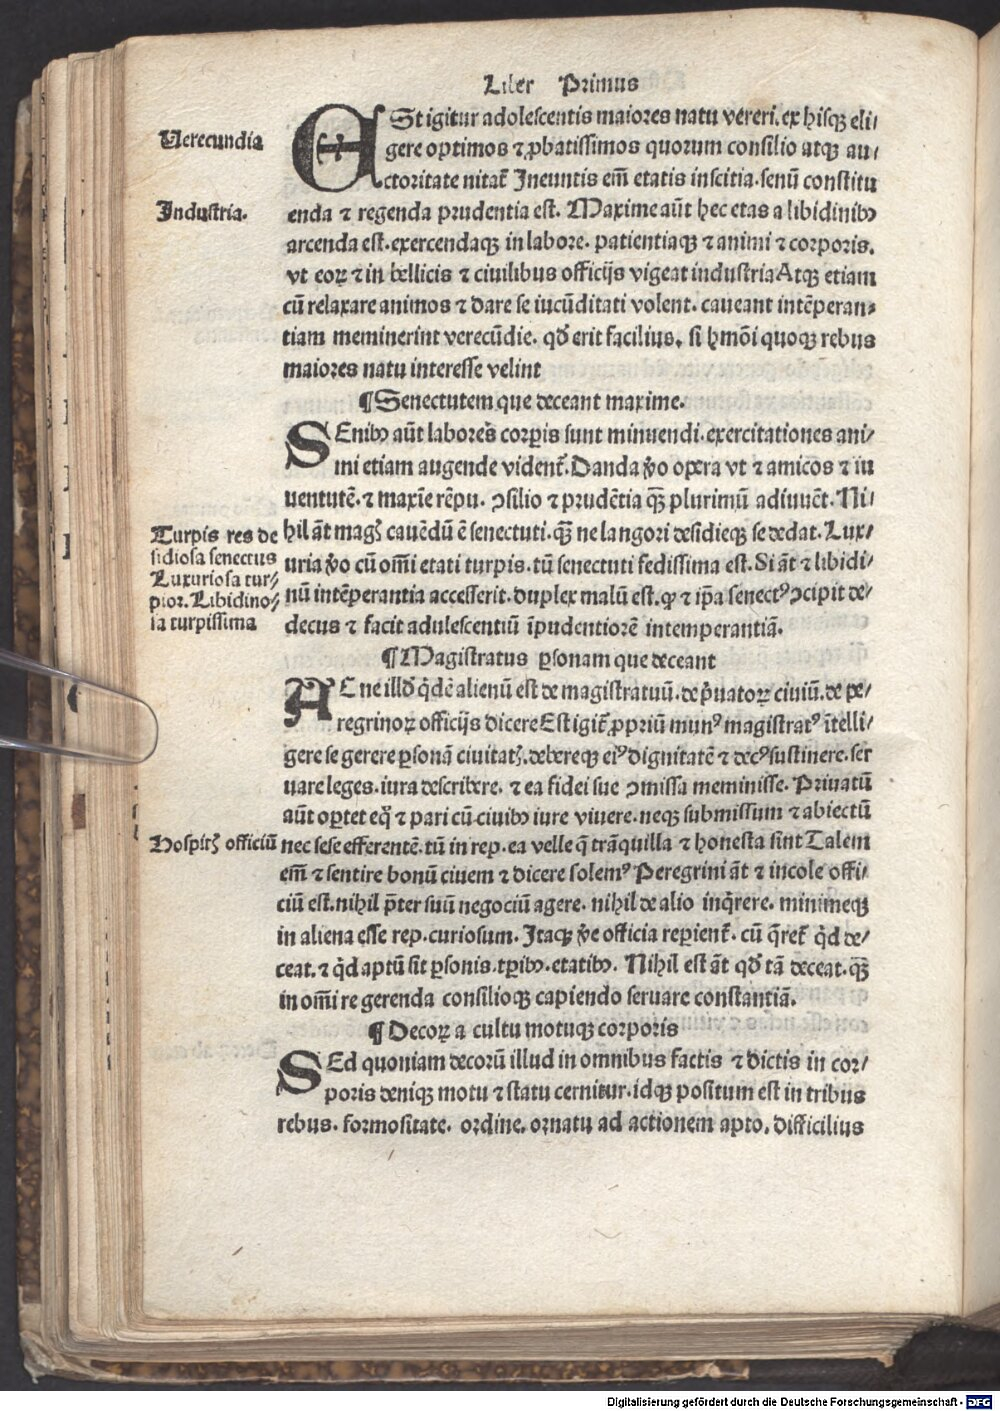 Liber Primus
Verecundia
Industria.
ESt igitur adolescentis maiores natu vereri. ex hisqꝫ eli/
gere optimos ⁊ ꝓbatissimos quorum consilio atqꝫ au/
ctoritate nitat᷑ Ineuntis em̄ etatis inscitia. senū constitu
enda ⁊ regenda prudentia est. Maxime aūt hec etas a libidinibꝰ
arcenda est. exercendaqꝫ in labore. patientiaqꝫ ⁊ animi ⁊ corporis.
vt eoꝝ ⁊ in bellicis ⁊ ciuilibus officijs vigeat industria Atqꝫ etiam
cū relaxare animos ⁊ dare se iucūditati volent. caueant intēperan/
tiam meminerint verecūdie. qđ erit facilius. si hmōi quoqꝫ rebus
maiores natu interesse velint
¶ Senectutem que deceant maxime.
SEnibꝰ aūt labores corꝑis sunt minuendi. exercitationes ani/
mi etiam augende vident᷑. Danda ꝟo opera vt ⁊ amicos ⁊ iu
uentutē. ⁊ maxīe rēpu. ꝯsilio ⁊ prudētia qꝫ̄ plurimū adiuuēt. Ni/
hil āt magꝭ cauēdū ē senectuti. qꝫ̄ ne langori desidieqꝫ se dedat. Lux/
uria ꝟo cū om̄i etati turpis. tū senectuti fedissima est. Si āt ⁊ libidi/
nū intēperantia accesserit. duplex malū est. qꝙ ⁊ ip̄a senectꝰ ꝯcipit de/
decus ⁊ facit adulescentiū īpudentiorē intemperantiā.
Turpis res de
sidiosa senectus
Luxuriosa tur/
pior. Libidino/
sa turpissima
¶ Magistratus ꝑsonam que deceant
AC ne illđ q̇dē alienū est de magistratuū. de p̄uatoꝝ ciuiū. de pe/
regrinoꝝ officijs dicere Est igit᷑ ꝓpriū munꝰ magistratꝰ ītelli/
gere se gerere ꝑsonā ciuitatꝭ. debereqꝫ eiꝰ dignitatē ⁊ decꝰ sustinere. ser
uare leges. iura describere. ⁊ ea fidei sue ꝯmissa meminisse. Priuatū
aūt oꝑtet eq̄ ⁊ pari cū ciuibꝰ iure viuere. neqꝫ submissum ⁊ abiectū
nec sese efferentē. tū in rep. ea velle q̄ trāquilla ⁊ honesta sint Talem
em̄ ⁊ sentire bonū ciuem ⁊ dicere solemꝰ Peregrini āt ⁊ incole offi/
ciū est. nihil p̄ter suū negociū agere. nihil de alio inq̇rere. minimeqꝫ
in aliena esse rep. curiosum. Itaqꝫ ꝟe officia reꝑient᷑. cū q̄ret᷑ q̇d de/
ceat. ⁊ q̇d aptū sit ꝑsonis. tꝑibꝰ. etatibꝰ. Nihil est āt qđ tā deceat. qꝫ̄
in om̄i re gerenda consilioqꝫ capiendo seruare constantiā.
Hospitꝭ officiū
¶ Decoꝝ a cultu motuqꝫ corporis
SEd quoniam decorū illud in omnibus factis ⁊ dictis in cor/
poris deniqꝫ motu ⁊ statu cernitur. idqꝫ positum est in tribus
rebus. formositate. ordine. ornatu ad actionem apto. difficilius
Digitalisierung gefördert durch die Deutsche Forschungsgemeinschaft - DFG